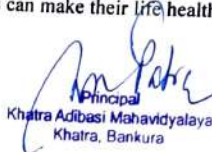 can make their life health
Principal
Khatra Adibasi Mahavidyalaya
Khatra, Bankura